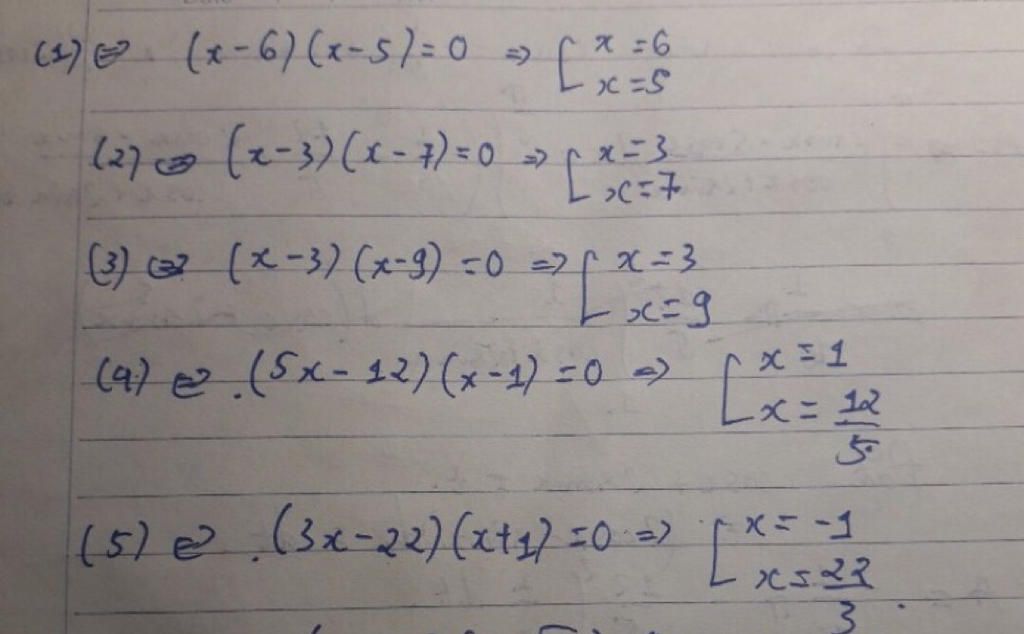 (1) ⇔ (x-6)(x-5)=0 ⇒ [ x=6
x=5
(2) ⇔ (x-3)(x-7)=0 ⇒ [ x=3
x=7
(3) ⇔ (x-3)(x-9)=0 ⇒ [ x=3
x=9
(4) ⇔ (5x-12)(x-1)=0 ⇒ [ x=1
x=12/5
(5) ⇔ (3x-22)(x+1)=0 ⇒ [ x=-1
x=22/3